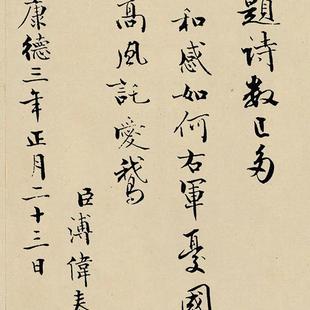 題詩数已多
和感如何右軍憂國
高風託愛鵞
臣溥偉
康德三年正月二十三日